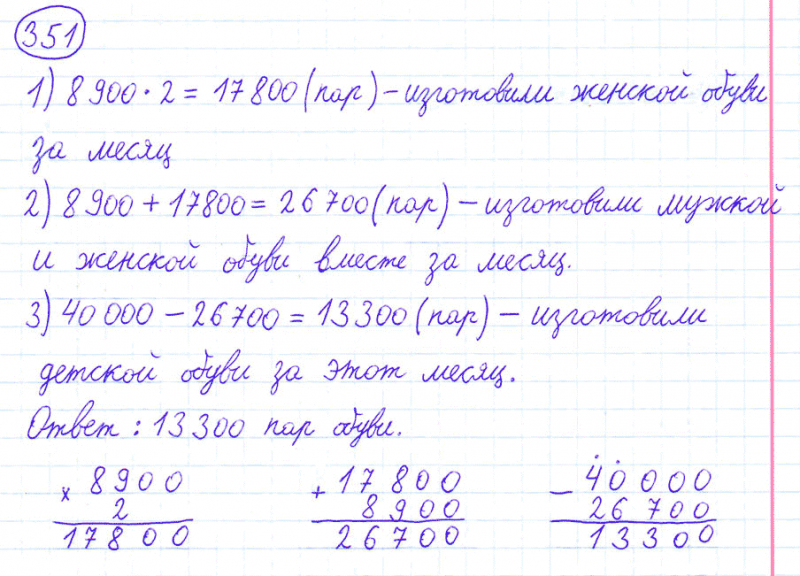 351
1) 8 900 · 2 = 17 800 (пар) – изготовили женской обуви
за месяц
2) 8 900 + 17800 = 26 700 (пар) – изготовили мужской
и женской обуви вместе за месяц.
3) 40 000 – 26 700 = 13 300 (пар) – изготовили
детской обуви за этот месяц.
Ответ : 13 300 пар обуви.
× 8900
2
17800
+ 17800
8900
26700
– 40000
26700
13300